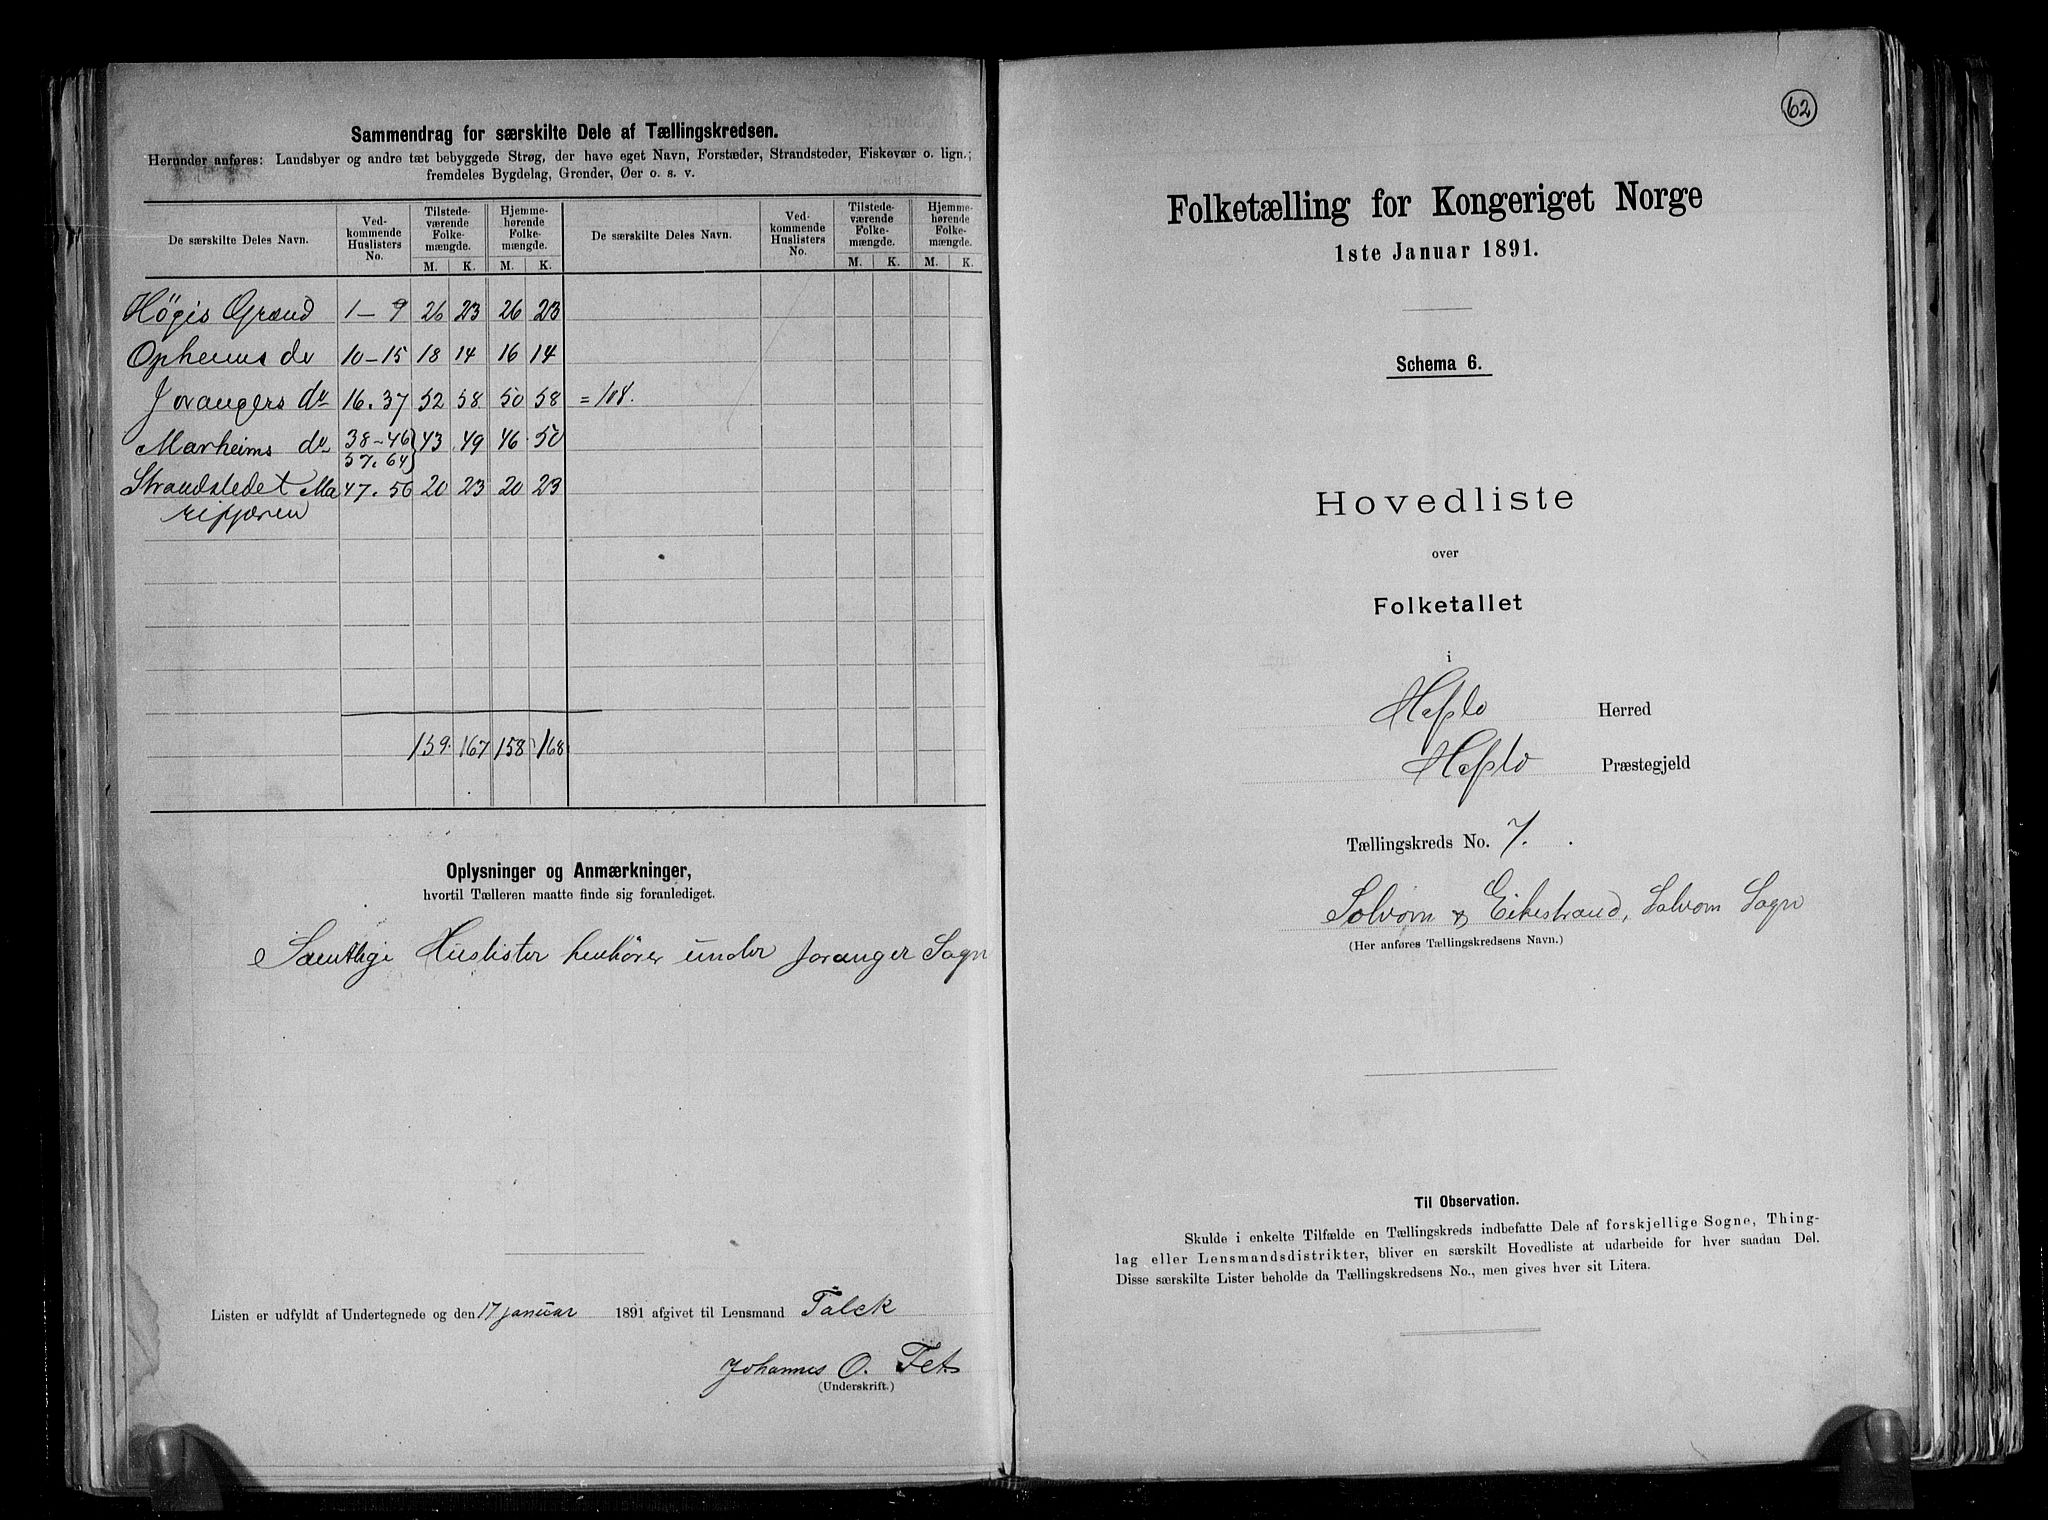 Sammendrag for særskilte Dele af Tællingskredsen.
Herunder anføres: Landsbyer og andre tæt bebyggede Strøg, der have eget Navn, Forstæder, Strandsteder, Fiskevær o. lign.;
fremdeles Bygdelag, Grender, Øer o. s. v.
De særskilte Deles Navn. Ved-kommende Huslisters No. Tilstede-værende Folke-mængde. Hjemme-hørende Folke-mængde. De særskilte Deles Navn. Ved-kommende Huslisters No. Tilstede-værende Folke-mængde. Hjemme-hørende Folke-mængde.
M. K. M. K. M. K. M. K.
Högis Grænd 1-9 26 23 26 23
Opheims do 10-15 18 14 16 14
Joranger s do 16.37 52 58 50 58 = 108.
Marheims do 38-46 57.64} 43 49 46 50
Strandstedet Ma 47.56 20 23 20 23
rifjæren
159. 167 158 168
Oplysninger og Anmærkninger,
hvortil Tælleren maatte finde sig foranlediget.
Samtlige Huslister henhörer under Joranger Sogn
Listen er udfyldt af Undertegnede og den 17 januar 1891 afgivet til Lensmand Falck
Johannes O. Fet
(Underskrift.)
62
Folketælling for Kongeriget Norge
1ste Januar 1891.
Schema 6.
Hovedliste
over
Folketallet
i
Hafslo Herred
Hafslo Præstegjeld
Tællingskreds No. 7.
Solvorn & Eikestrand, Solvorn Sogn
(Her anføres Tællingskredsens Navn.)
Til Observation.
Skulde i enkelte Tilfælde en Tællingskreds indbefatte Dele af forskjellige Sogne, Thing-
lag eller Lensmandsdistrikter, bliver en særskilt Hovedliste at udarbeide for hver saadan Del.
Disse særskilte Lister beholde da Tællingskredsens No., men gives hver sit Litera.